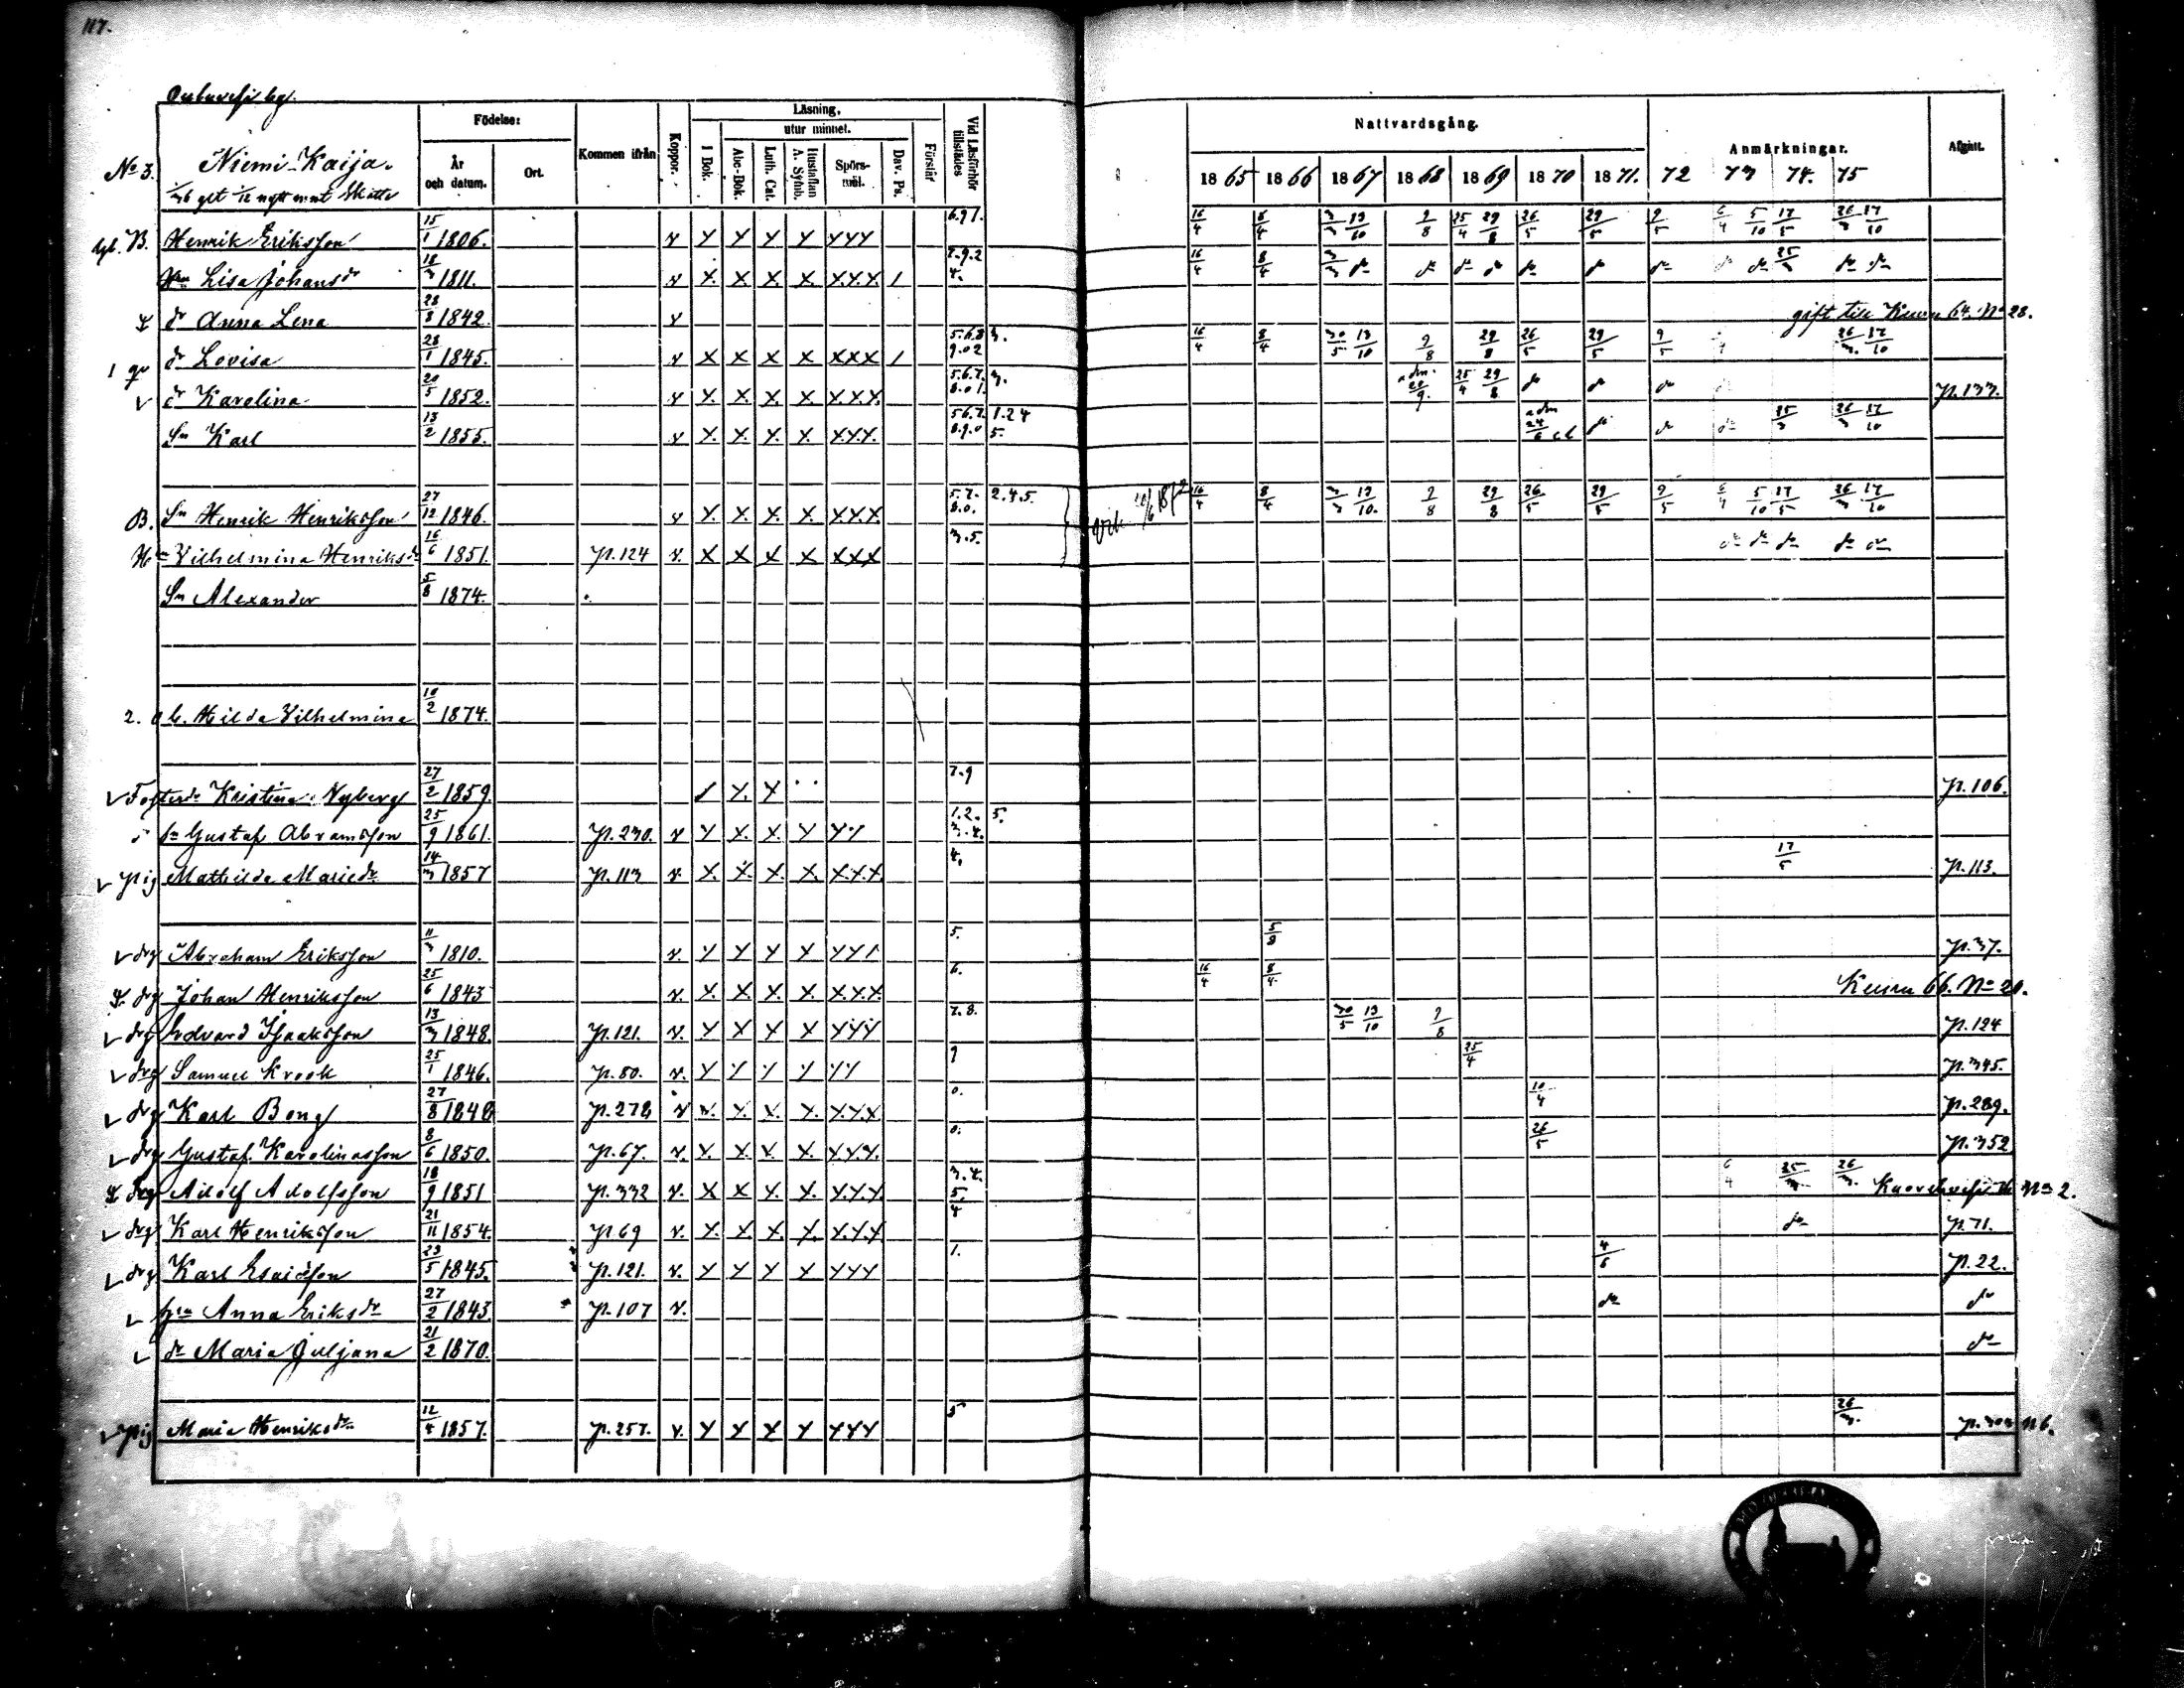 117.
No 3. Niemi-Kaija.
Födelse: År och datum. Ort. Kommen ifrån Koppor. Läsning, I Bok. utur minnet. Abc-Bok. Luth. Cat. Hustaflan A. Symb. Spörs-mål. Dav. Ps. Förstår Vid Läsförhör tillstädes
Nattvardsgång. 1865 1866 1867 1868 1869 1870 1871. Anmärkningar. 72 73 74. 75 Afgått.
B. Henrik Eriksson 15/1 1806. v Y Y Y Y YYY 6.9 1. 16/4 8/4 3/3 13/10 9/8 25/4 29/8 26/5 29/5 9/5 6/4 5/10 17/5 26/3 17/10
Hu Lisa Johansdr 18/3 1811. v X. X X. X. X.X.X. / 7.9.2 4. 16/4 8/4 3/3 do do do do do do do do do 25/3 do do
dr Anna Lena 28/8 1842. v gift till Kuru 64. No 28.
dr Lovisa 28/1 1845. v X X X X XXX / 5.6.8 3. 9.02 16/4 8/4 30/5 13/10 9/8 29/8 26/5 29/5 9/5 26/3. 17/10
v dr Karolina 20/5 1852. v X. X. X. X. X.X.X. 5.6.7. 3. 8.01. adm. 25/4 29/8 do do do p. 133.
Sn Karl 13/2 1855. v X. X. X. X. X.X.X. 5.6.7. 1.24 8.9.0 5. adm 24/6 do do do 25/3 26/3 17/10
B. Sn Henrik Henriksson 27/12 1846. v X. X. X. X. X.X.X. 5.7. 2.4.5. 8.0. 1872 16/4 8/4 3/3 13/10. 9/8 29/8 26/5 29/5 9/5 6/4 5/10 17/5 26/3 17/10
Hu Vilhelmina Henriksdr 16/6 1851. p. 124 v. X X X X XXX 3.5. do do do do do
Sn Alexander 5/8 1874.
2. Hilda Vilhelmina 10/2 1874.
v Fosterdr Kristina Nyberg 27/2 1859. / Y. Y 7.9 p. 106.
Gustaf Abramsson 25/9 1861. p. 230. v Y X. X. Y YY 1.2. 5. 3.4.
v pig Mathilda Mariedr 14/3 1857 p. 113 v. X. X. X. X. X.X.X 4. 17/5 p. 113.
v drg Abraham Eriksson 11/3 1810. v. Y Y Y X YY/ 5. 5/8 p. 37.
drg Johan Henriksson 25/6 1843 v. X. X. X. X. X.X.X. 6. 16/4 8/4. Kuru 66. No 20.
v drg Edvard Isaaksson 13/3 1848. p. 121. v. Y Y Y Y YYY 7.8. 30/5 13/10 9/8 p. 124
v drg Samuel Krook 25/1 1846. p. 80. v. Y Y Y Y YY 9 25/4 p. 345.
v drg Karl Bong 27/8 1848 p. 278 v v. Y. X. X. X.Y.X 0. 10/4 p. 289.
v drg Gustaf Karolinasson 8/6 1850. p. 67. v. X. X. X. X. X.Y.Y. 0. 26/5 p. 352
drg Adolf Adolfsson 18/9 1851 p. 332 v. X X Y. X. Y.Y.Y 3.4. 5. 6/4 25/3 26/3. No 2.
v drg Karl Henriksson 21/11 1854. p 69 v. X. X. X. X. X.Y.X 4 do p. 71.
v drg Karl Esaiasson 23/5 1845. p. 121. v. Y Y Y Y YYY 1. 4/6 p. 22.
v hu Anna Eriksdr 27/2 1843. p. 107 v. do do
v dr Maria Juljana 21/2 1870. do
v pig Maria Henriksdr 12/4 1857. p. 257. v. Y Y Y Y YYY 5 26/3.